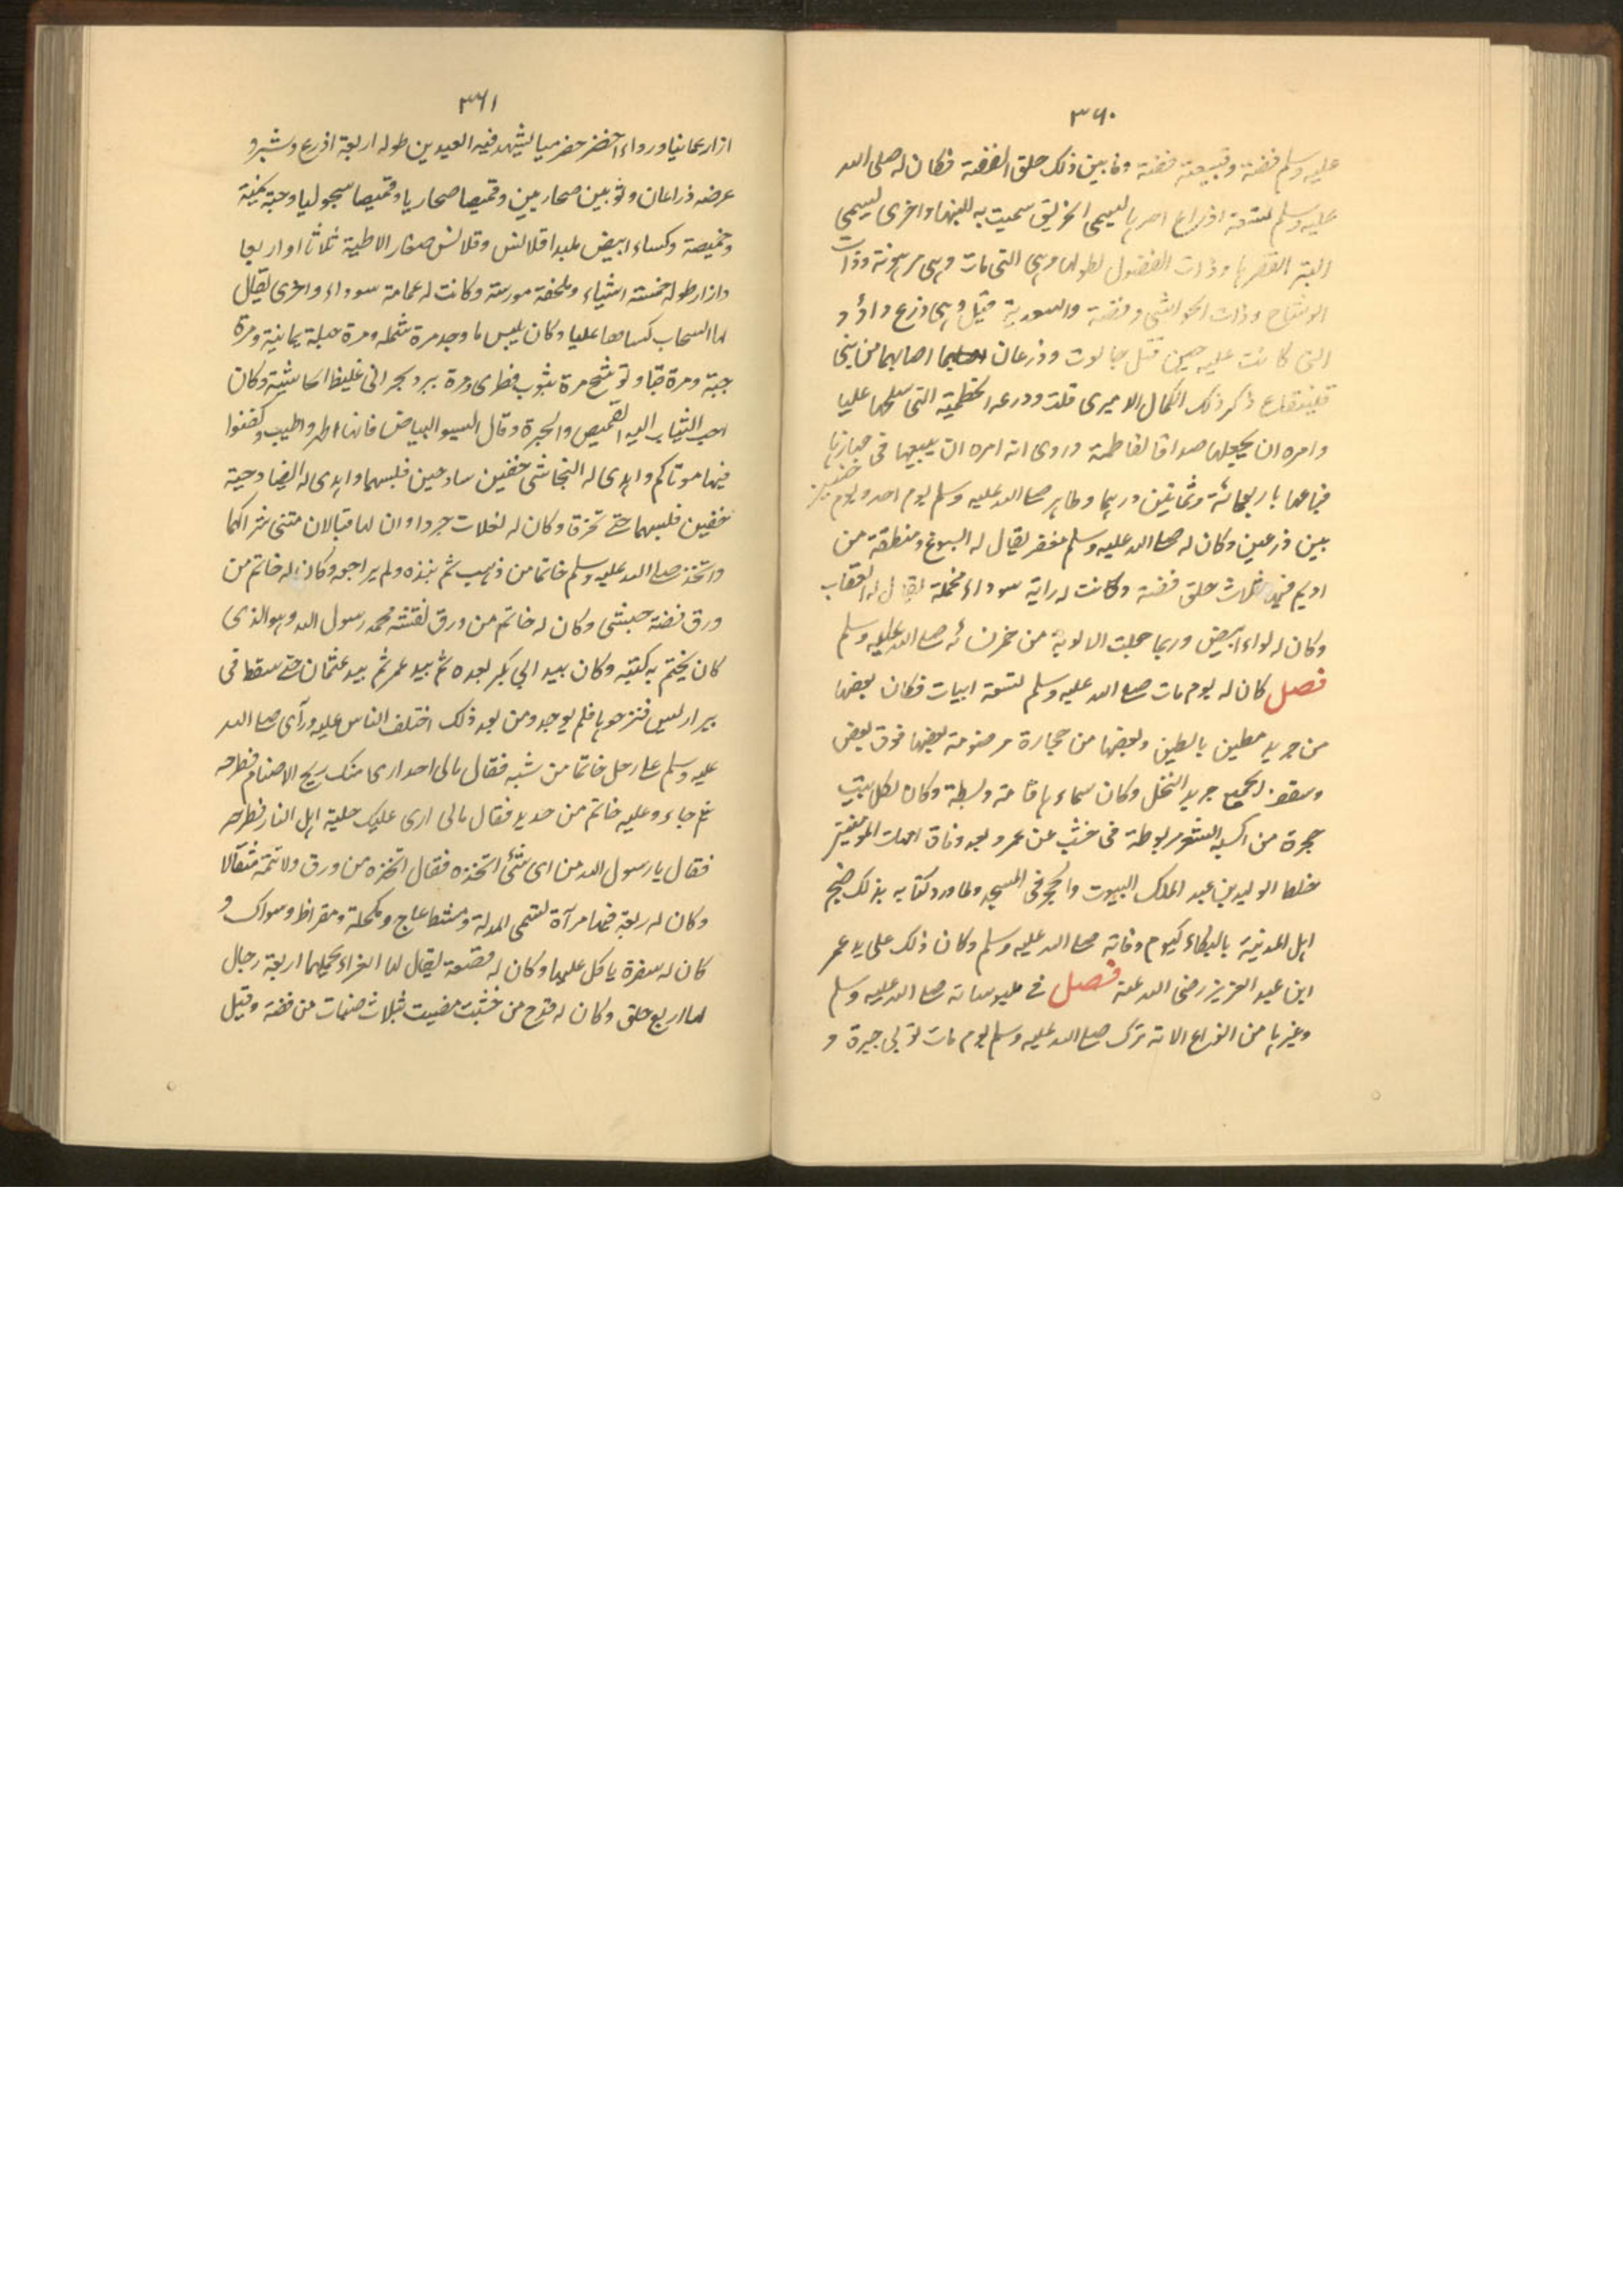 ٣٦٠
عليه وسلم فضة وقبيعته فضة وما بين ذلك حلق الفضة فكان له صلى الله
عليه وسلم تسعة ادراع احدها تسمى الخرنق سميت به للينها واخرى تسمى
البتر القصرها وذات الفضول لطولها وهى التى مات وهى مرهونة وذات
الوشاح وذات الحواشى وفضة والسعدية قيل وهى درع داؤد
التى كانت عليه حين قتل جالوت ودرعان اصابهما من بنى
قينقاع ذكر ذلك الكمال الاميرى قلت ودرعه الحطمية التى سلحها عليا
وامره ان يجعلها صداقا لفاطمة وروى انه امره ان يبيعها فى جهازها
فباعها باربعمائة وثمانين درهما وظاهر صلے الله عليه وسلم يوم احد ويوم حنين
بين درعين وكان له صلے الله عليه وسلم مغفر يقال له السبوغ ومنطقة من
اديم فيها ثلاث حلق فضة وكانت له راية سوداء مخملة يقال لها العقاب
وكان له لواء ابيض وربما جعلت الالوية من خمر نسائه صلے الله عليه وسلم
فصل كان له يوم مات صلے الله عليه وسلم تسعة ابيات فكان بعضها
من جريد مطين بالطين وبعضها من حجارة مرضومة بعضها فوق بعض
وسقف الجميع جريد النخل وكان سماءها قامة وبسطة وكان لكل بيت
حجرة من اكسية الشعر مربوطة فى خشب عن عرعر وبعد وفاة امهات المؤمنين
خلط الوليد بن عبد الملك البيوت والحجر فى المسجد ولما ورد كتابه بذلك ضج
اهل المدينة بالبكاء كيوم وفاته صلے الله عليه وسلم وكان ذلك على يد عمر
ابن عبد العزيز رضى الله عنه فصل فے ملبوساته صلے الله عليه وسلم
وغيرها من انواع الاته ترك صلے الله عليه وسلم يوم مات ثوبى حبرة و
٣٦١
ازار عمانيا ورداء اخضر حضرميا يشهد فيه العيدين طوله اربعة اذرع وشبر و
عرضه ذراعان وثوبين صحاريين وقميصا صحاريا وقميصا سحوليا وجبة يمنية
وخميصة وكساء ابيض ملبدا قلانس وقلانس صغار الاطية ثلاثا او اربعا
وازار طوله خمسة اشياء وملحفة مورسة وكانت له عمامة سوداء واخرى يقال
لها السحاب كساها عليا وكان يلبس ما وجد مرة شملة ومرة حبلة يمانية ومرة
جبة ومرة قبا وتوشح مرة بثوب قطرى ومرة ببرد نجرانى غليظ الحاشية وكان
احب الثياب اليه القميص والحبرة وقال البسوا البياض فانها اطهر واطيب وكفنوا
فيها موتاكم واهدى له النجاشى خفين ساذجين فلبسهما واهدى له ايضا دحية
خفين فلبسهما حتے تخرقا وكان له نعلات جرداوان لها قبالان مثنى شراكهما
واتخذ صلے الله عليه وسلم خاتما من ذهب ثم نبذه ولم يراجعه وكان له خاتم من
ورق فضة حبشى وكان له خاتم من ورق نقشه محمد رسول الله وهو الذى
كان يختم به كتبه وكان بيد ابى بكر بعده ثم بيد عمر ثم بيد عثمان حتے سقط فى
بير اريس فنزحوها فلم يوجد ومن بعد ذلك اختلف الناس عليه ورآى صلے الله
عليه وسلم على رجل خاتما من شبه فقال مالى اجد ارى منك ريح الاصنام فطرحه
ثم جاء وعليه خاتم من حديد فقال مالى ارى عليك حلية اهل النار فطرحه
فقال يا رسول الله من اى شئ اتخذه فقال اتخذه من ورق ولا تتمه مثقالا
وكان له ربعة فيها مرآة تسمى المدلة ومشط عاج ومكحلة ومقراظ وسواك و
كان له سفرة ياكل عليها وكان له قصعة يقال لها الغراء يحملها اربعة رجال
لها اربع حلق وكان له قدح من خشب مضبب بثلاث ضبات من فضة وقيل